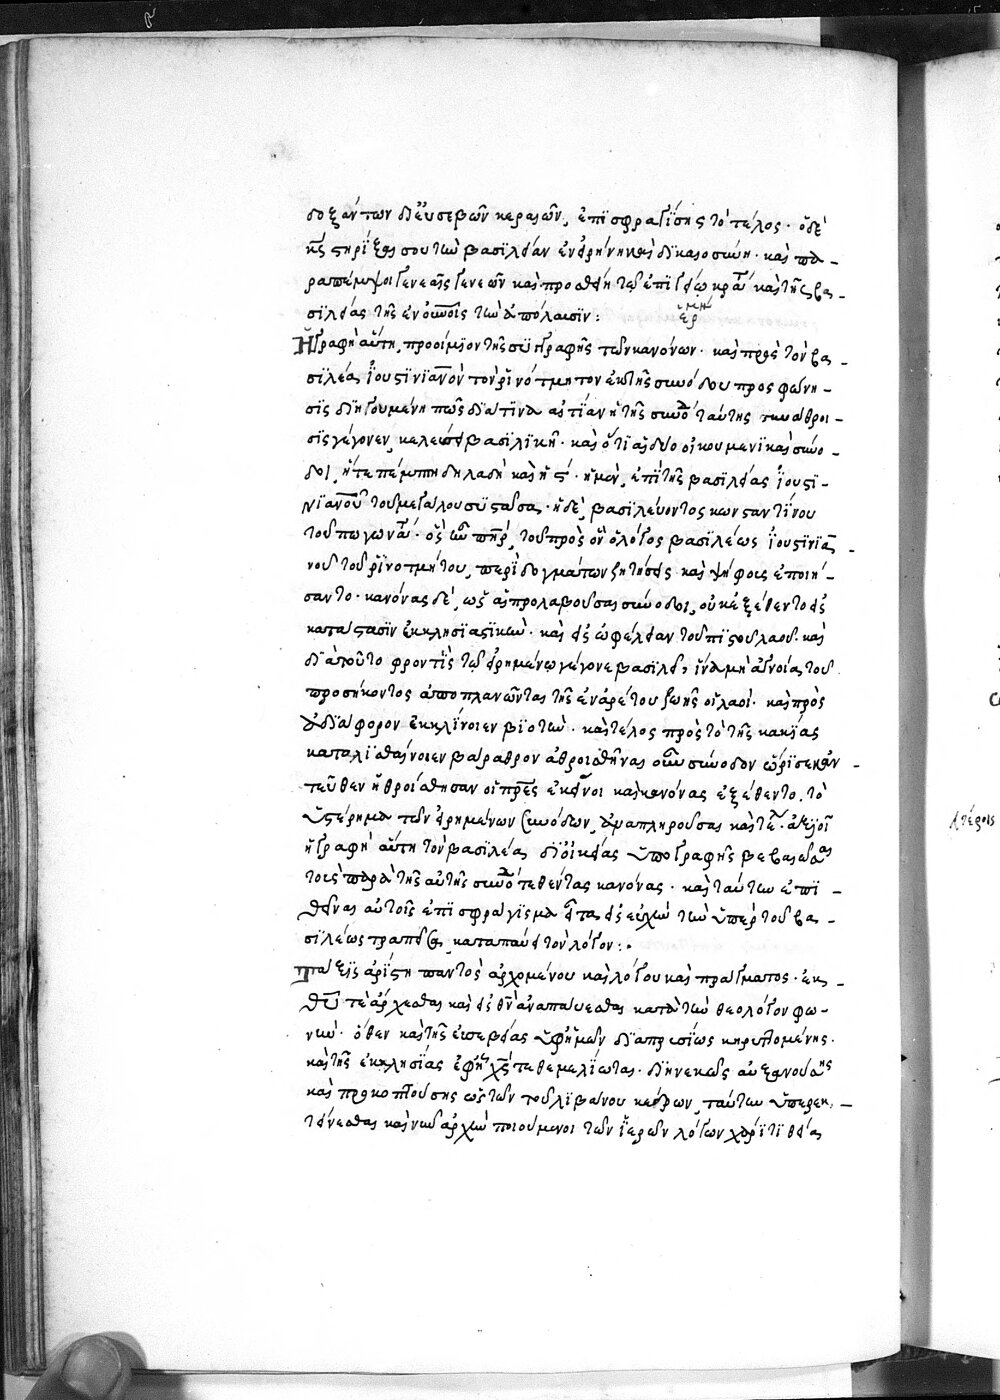 δοξάντων δι' εὐσεβῶν κεραιῶν, ἐπισφραγίσῃς τὸ τέλος· ὁ δὲ
κς στηρίξαι σου τὴν βασιλείαν ἐν εἰρήνῃ καὶ δικαιοσύνῃ· καὶ πα-
ραπέμψοι γενεαῖς γενεῶν καὶ προσθείη τῷ ἐπιγείῳ κράτει καὶ τῆς βα-
σιλείας τῆς ἐν οὐνοῖς τὴν ἀπόλαυσιν:
ἑρμη
Ἡ γραφὴ αὕτη, προοίμιον τῆς συγγραφῆς τῶν κανόνων· καὶ πρὸς τὸν βα-
σιλέα Ἰουστινιανὸν τὸν ῥινότμητον ἐκ τῆς συνόδου προσφώνη-
σις διηγουμένη πῶς διὰ τίνα αἰτίαν ἡ τῆς συνόδ ταύτης συνάθροι-
σις γέγονεν, κελεύσει βασιλικῇ· καὶ ὅτι αἱ δύο οἰκουμενικαὶ σύνο-
δοι, ἥ τε πέμπτη δηλαδὴ καὶ ἡ ς· ἡ μὲν, ἐπὶ τῆς βασιλείας Ἰουστι-
νιανοῦ τοῦ μεγάλου συστᾶσα· ἡ δὲ, βασιλεύοντος κωνσταντίνου
τοῦ πωγωνάτ· ὃς ἦν πηρ, τοῦ πρὸς ὃν ὁ λόγος βασιλέως Ἰουστινια-
νοῦ τοῦ ῥινοτμήτου, περὶ δογμάτων ζητήσεις καὶ ψήφους ἐποιή-
σαντο· κανόνας δὲ, ὡς αἱ προλαβοῦσαι σύνοδοι, οὐκ ἐξέθεντο εἰς
κατάστασιν ἐκκλησιαστικὴν· καὶ εἰς ὠφέλειαν τοῦ πιστοῦ λαοῦ· καὶ
διὰ τοῦτο φροντὶς τῷ εἰρημένῳ γέγονε βασιλεῖ, ἵνα μὴ ἀγνοίᾳ τοῦ
προσήκοντος ἀποπλανῶνται τῆς ἐναρέτου ζωῆς οἱ λαοὶ· καὶ πρὸς
ἀδιάφορον ἐκκλίνοιεν βιοτὴν· καὶ τέλος πρὸς τὸ τῆς κακίας
καταλισθαίνοιεν βάραθρον ἀθροισθῆναι οὖν σύνοδον ὥρισεν· ἐν-
τεῦθεν ἠθροίσθησαν οἱ πρες ἐκεῖνοι καὶ κανόνας ἐξέθεντο, τὸ
ὑστέρημα τῶν εἰρημένων συνόδων, ἀναπληροῦσαι καὶ τὰ ἀξιοῖ
ἡ γραφὴ αὕτη τὸν βασιλέα δι' οἰκείας ὑπογραφῆς βεβαιῶσαι
τοὺς παρὰ τῆς αὐτῆς συνόδ τεθέντας κανόνας· καὶ ταύτην ἐπι-
θεῖναι αὐτοῖς ἐπισφράγισμα εἶτα εἰς εὐχὴν τὴν ὑπὲρ τοῦ βα-
σιλέως τραπεῖσα, καταπαύει τὸν λόγον:·
Τάξις ἀρίστη παντὸς ἀρχομένου καὶ λόγου καὶ πράγματος· ἐκ
θῦ τε ἄρχεσθαι καὶ εἰς θν ἀναπαύεσθαι κατὰ τὴν θεολόγον φω-
νὴν· ὅθεν καὶ τῆς εὐσεβείας ὑφ' ἡμῶν διαπρυσίως κηρυττομένης·
καὶ τῆς ἐκκλησίας ἐφ' ᾗ χς τεθεμελίωται· διηνεκῶς αὐξανούσης
καὶ προκοπτούσης ὡς τῶν τοῦ λιβάνου κέδρων, ταύτην ὑπερεκ-
τείνεσθαι καὶ νῦν ἀρχὴν ποιούμενοι τῶν ἱερῶν λόγων χάριτι θείᾳ